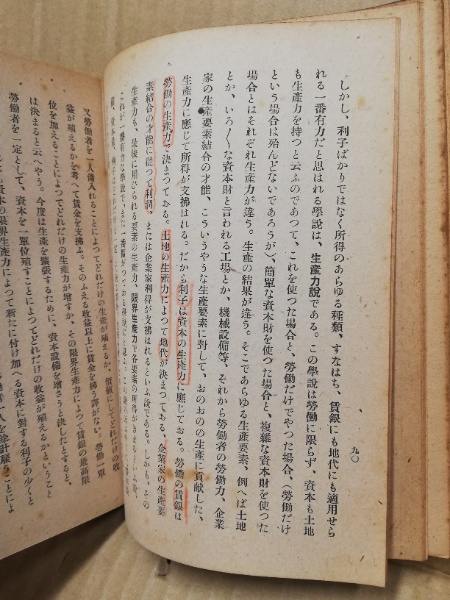 九〇
しかし、利子ばかりではなく所得のあらゆる種類、すなはち、賃銀にも地代にも適用せら
れる一番有力だと思はれる學說は、生產力說である。この學說は勞働に限らず、資本も土地
も生產力を持つと云ふのであつて、これを使つた場合と、勞働だけでやつた場合、(勞働だけ
といふ場合は殆んどないであろうが)、簡單な資本財を使つた場合と、複雜な資本財を使つた
場合とはそれぞれ生產力が違う。生產の結果が違う。そこであらゆる生產要素、例へば土地
とか、いろ〱な資本財と言われる工場とか、機械設備等、それから勞働者の勞働力、企業
家の生產要素結合の才能、こういうやうな生產要素に對して、おのおのの生產に貢獻した、
生產力に應じて所得が支拂はれる。だから利子は資本の生產力に應じておる。勞働の賃銀は
勞働の生產力で決まつておる。土地の生產力によつて地代が決まつておる、企業家の生產要
素結合の才能に從つて利潤、または企業家利得が支拂はれるといふ譯である。しかも、その
生產力も、最後に用ひられる要素の生產力、限界生產力で各要素の所得がきまる
又勞働者を一人傭入れることによつてどれだけの生產が殖えるか、價格にしてどれだけの收
益が殖えるかを考へて賃金を支拂ふ。そのふえる收益以上に賃金を拂う筈がない。勞働一單
位を加えることによつてどれだけの生產力が增すか、その限界生產力によつて賃銀の最高限
は決まると云へやう。今度は生產を擴張するために、資本設備を增さうと決したとすると、
勞働者を一定として、資本を一單位殖すことによつてどれだけの收益が殖えるかということ